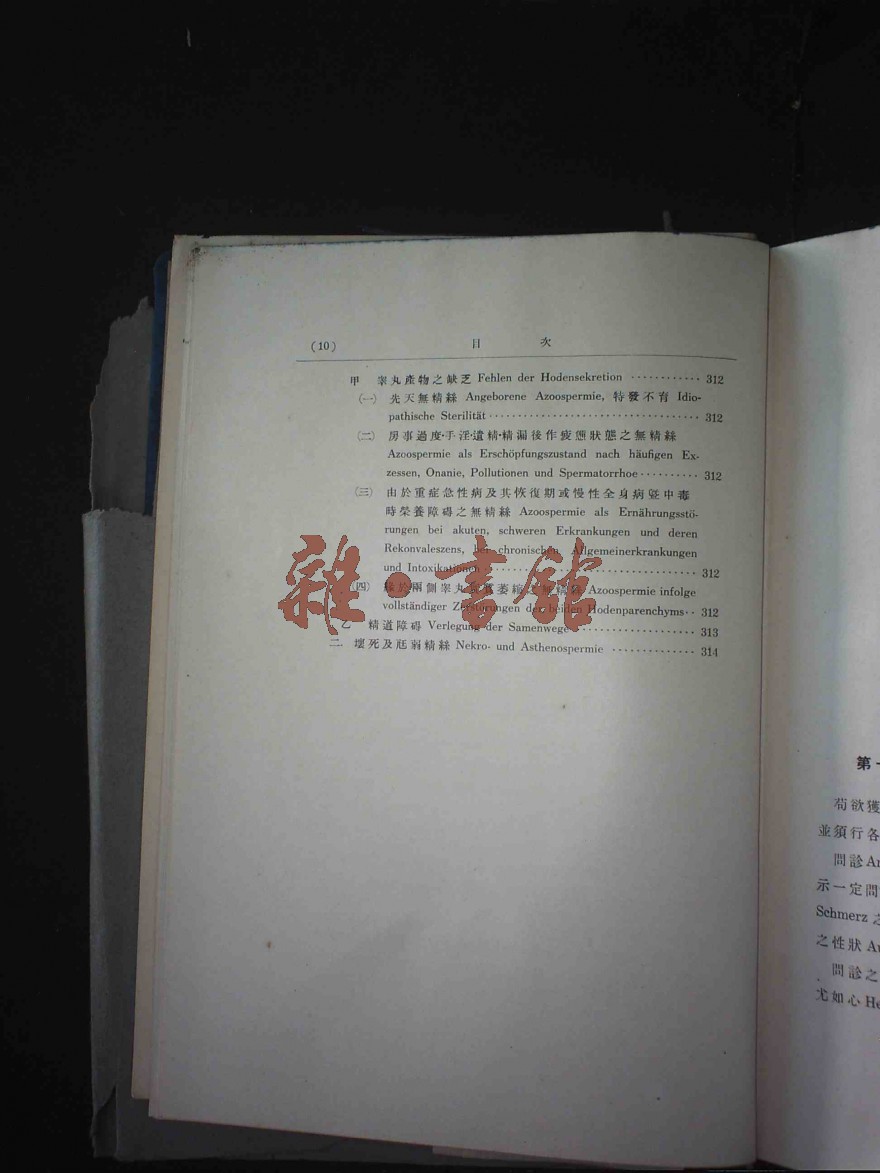 (10) 目 次
甲 睾丸產物之缺乏 Fehlen der Hodensekretion ············ 312
(一) 先天無精絲 Angeborene Azoospermie, 特發不育 Idio-
pathische Sterilität ···································· 312
(二) 房事過度·手淫·遺精·精漏後作疲憊狀態之無精絲
Azoospermie als Erschöpfungszustand nach häufigen Ex-
zessen, Onanie, Pollutionen und Spermatorrhoe ·········· 312
(三) 由於重症急性病及其恢復期或慢性全身病曁中毒
時榮養障碍之無精絲 Azoospermie als Ernährungsstö-
rungen bei akuten, schweren Erkrankungen und deren
Rekonvaleszens, bei chronischen Allgemeinerkrankungen
und Intoxikationen ···································· 312
(四) 於兩側睾丸萎縮之無精絲 Azoospermie infolge
vollständiger Zerstörungen der beiden Hodenparenchyms ·· 312
乙 精道障碍 Verlegung der Samenwege ···················· 313
二 壞死及尫弱精絲 Nekro- und Asthenospermie ·············· 314
雜·書館
第一
苟欲獲
並須行各
問診 
示一定問
Schmerz 之
之性狀 
問診之
尤如心